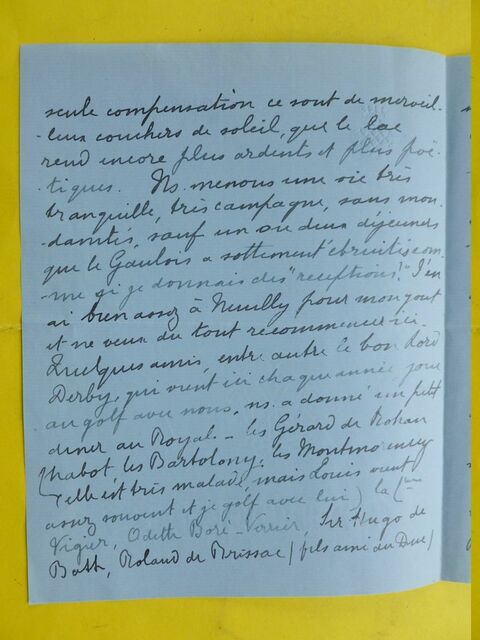 seule compensation ce sont de merveil-
-leux couchers de soleil, que le lac
rend encore plus ardents et plus poé-
-tiques. Ns. menons une vie très
tranquille, très campagne, sans mon-
-danités, sauf un ou deux déjeuners
que le Gaulois a sottement ébruités com-
-me si je donnais des "réceptions". J'en
ai bien assez à Neuilly pour mon goût
et ne veux du tout recommencer ici.
Quelques amis, entre autre le bon Lord
Derby, qui vient ici chaque année jouer
au golf avec nous, ns. a donné un petit
diner au Royal - les Gérard de Rohan
Chabot, les Bartolony, les Montmorency
(elle est très malade, mais Louis vient
assez souvent et je golf avec lui) la Ctesse
Vigier, Odette Boré-Verrier, Sir Hugo de
Bath, Roland de Brissac (fils ainé du Duc)